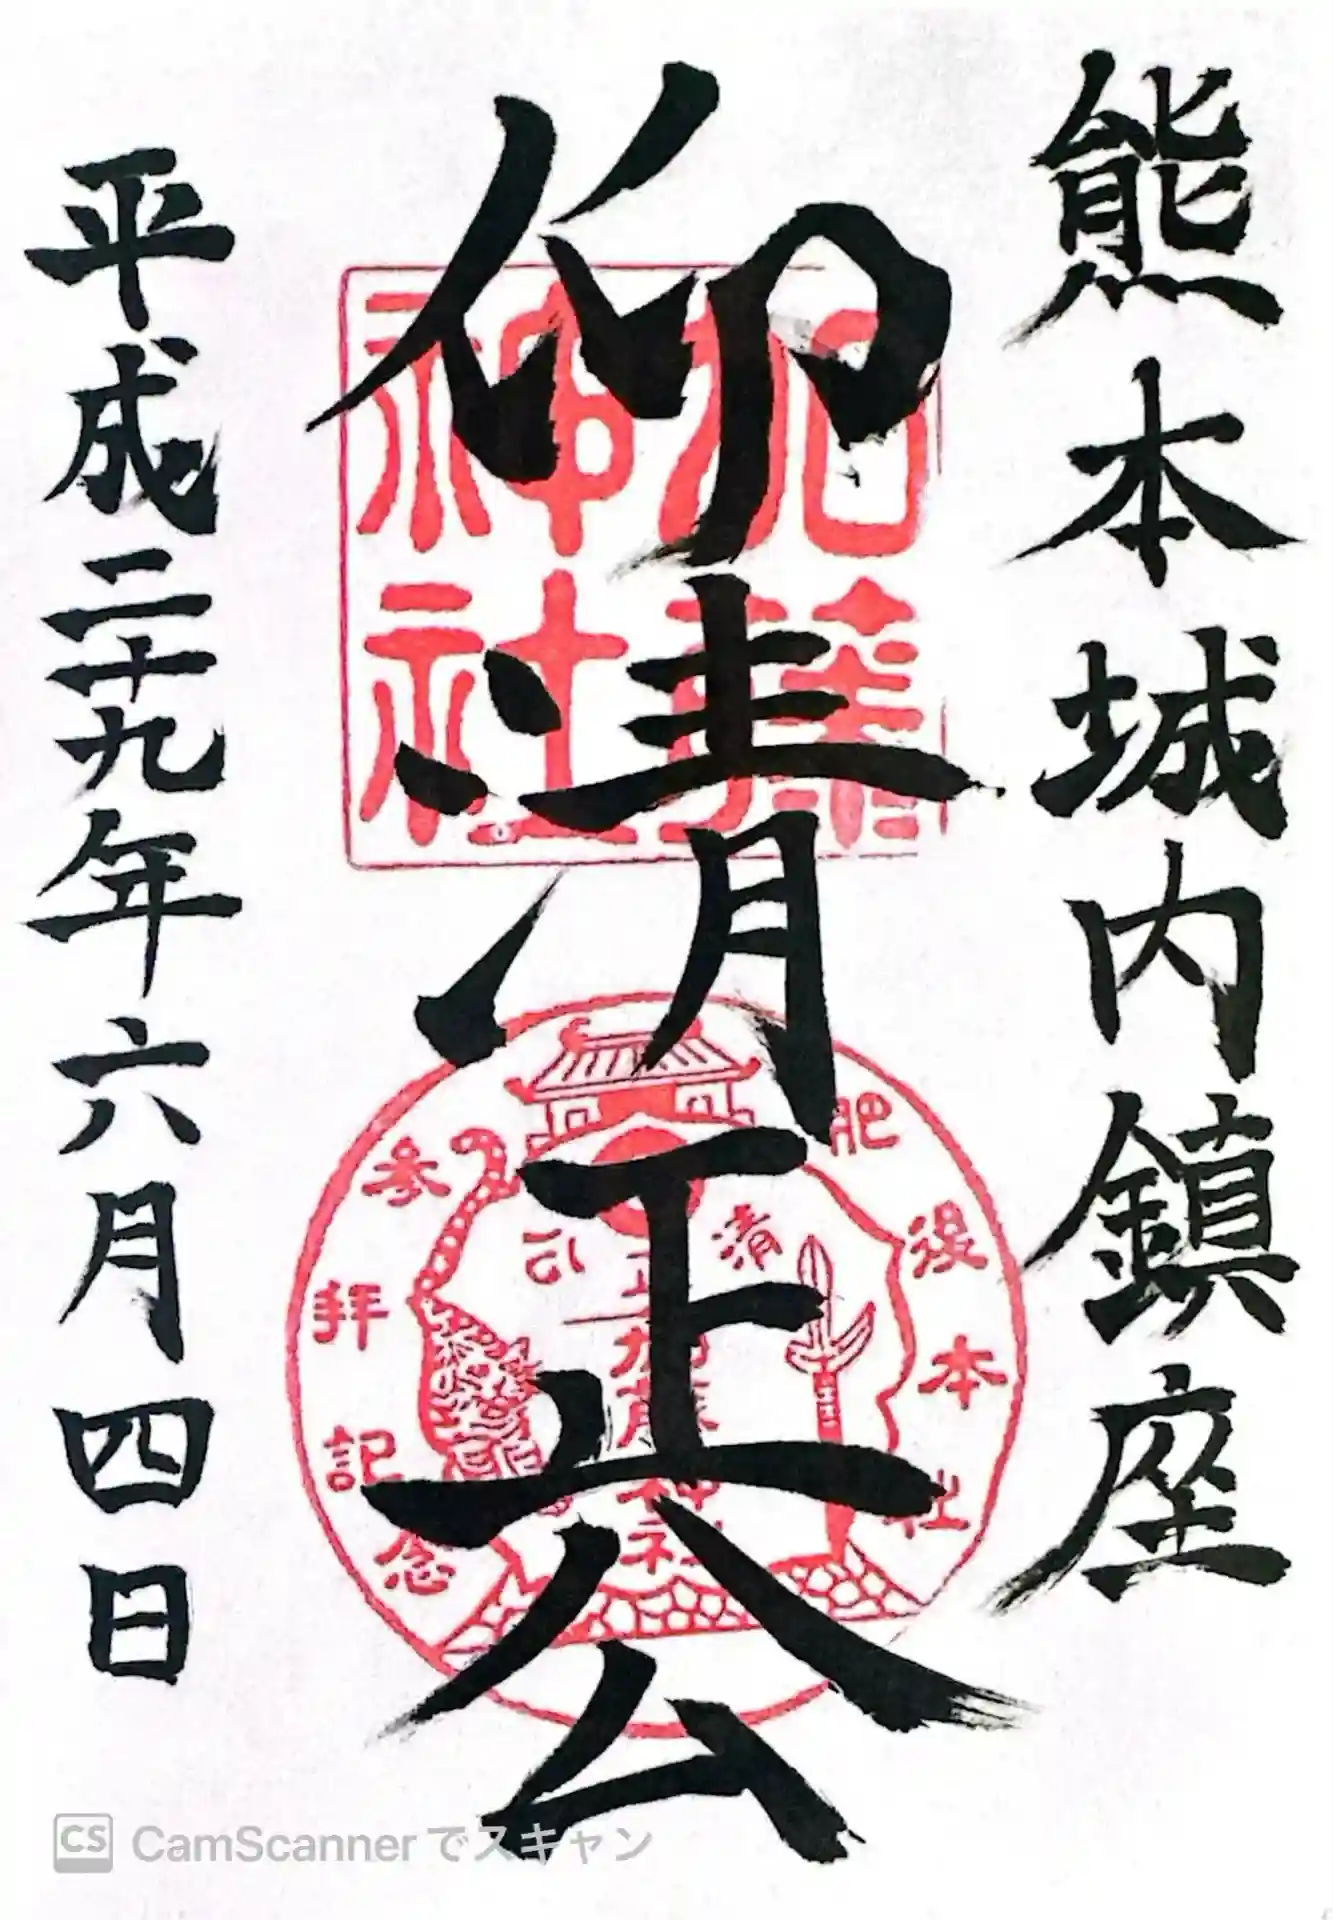 熊本城内鎮座
仰清正公
平成二十九年六月四日
加藤
神社
肥後本社
清正公
加藤神社
参拝記念
CS CamScannerでスキャン